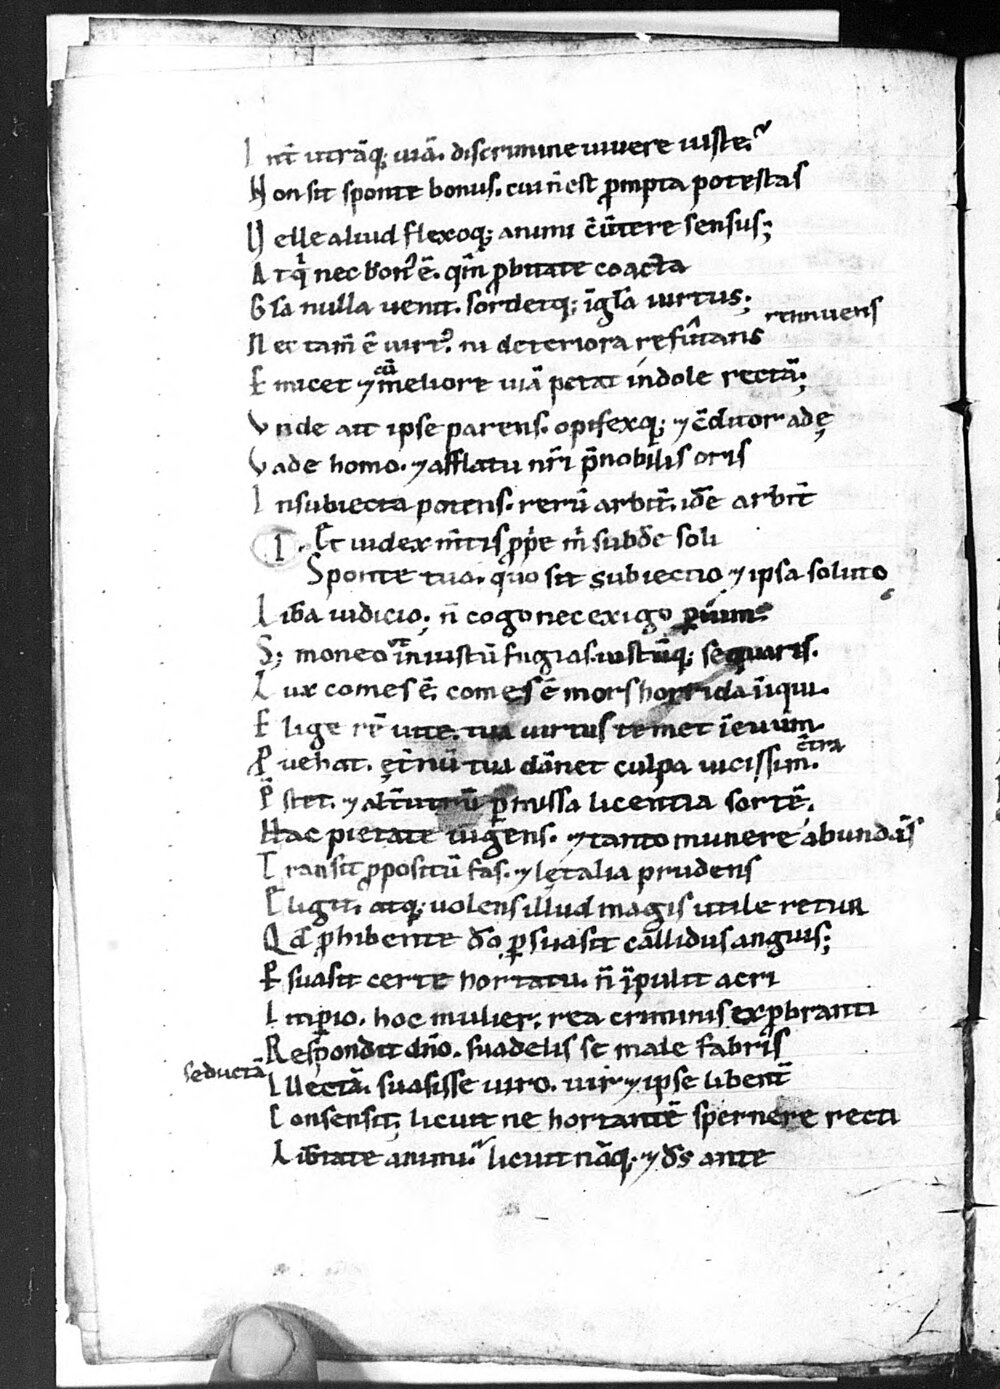 Int̄ utrāq; uiā. discrimine uiuere iuste.
Non sit sponte bonus. cui n̄ est prompta potestas
Velle aliud flexoq; animi c̄uertere sensus;
Atq nec bon᷒ ē. qm̄ probitate coacta
Gl̄a nulla uenit. sordetq; īgl̄a uirtus;
renuens
Nec tam̄ ē uirt᷒. ni deteriora refutans
Emicet ⁊ meliorē uiā petat indole rectā;
Vnde ait ipse parens. opifexq; ⁊ c̄ditor adę
Vade homo. ⁊ afflatu nr̄i p̄nobilis oris
Insubiecta potens. rerū arbit̄. idē arbit̄
I. Et iudex m̄tis pprie m̄ subde soli
Sponte tua. quo sit subiectio ⁊ ipsa soluto
Lib̄a iudicio; n̄ cogo nec exigo
S; moneo iniustū fugias. iustūq; sequaris.
Lux comes ē; comes ē mors horrida iniqui.
Elige rē uitę. tua uirtus temet in euum
c̄tra
Puehat. ęt̄nū tua dānet culpa uicissim.
P̄stet. ⁊ alt̄utrū pmissa licentia sortē.
Hac pietate uigens. ⁊ tanto munere abundās
Transit ppositū fas. ⁊ lętalia prudens
Eligit. atq; uolens illud magis utile retur
Qd̄ phibente dō psuasit callidus anguis;
Psuasit certe hortatu. n̄ īpulit acri
Impio. hoc mulier. rea criminis expbranti
Respondit dn̄o. suadelis se male fabris
seductā
Illectā. suasisse uiro. uir ⁊ ipse libent̄
Consensit; licuit ne hortantē spernere recti
Lib̄tate animi. licuit nāq; ⁊ ds̄ ante